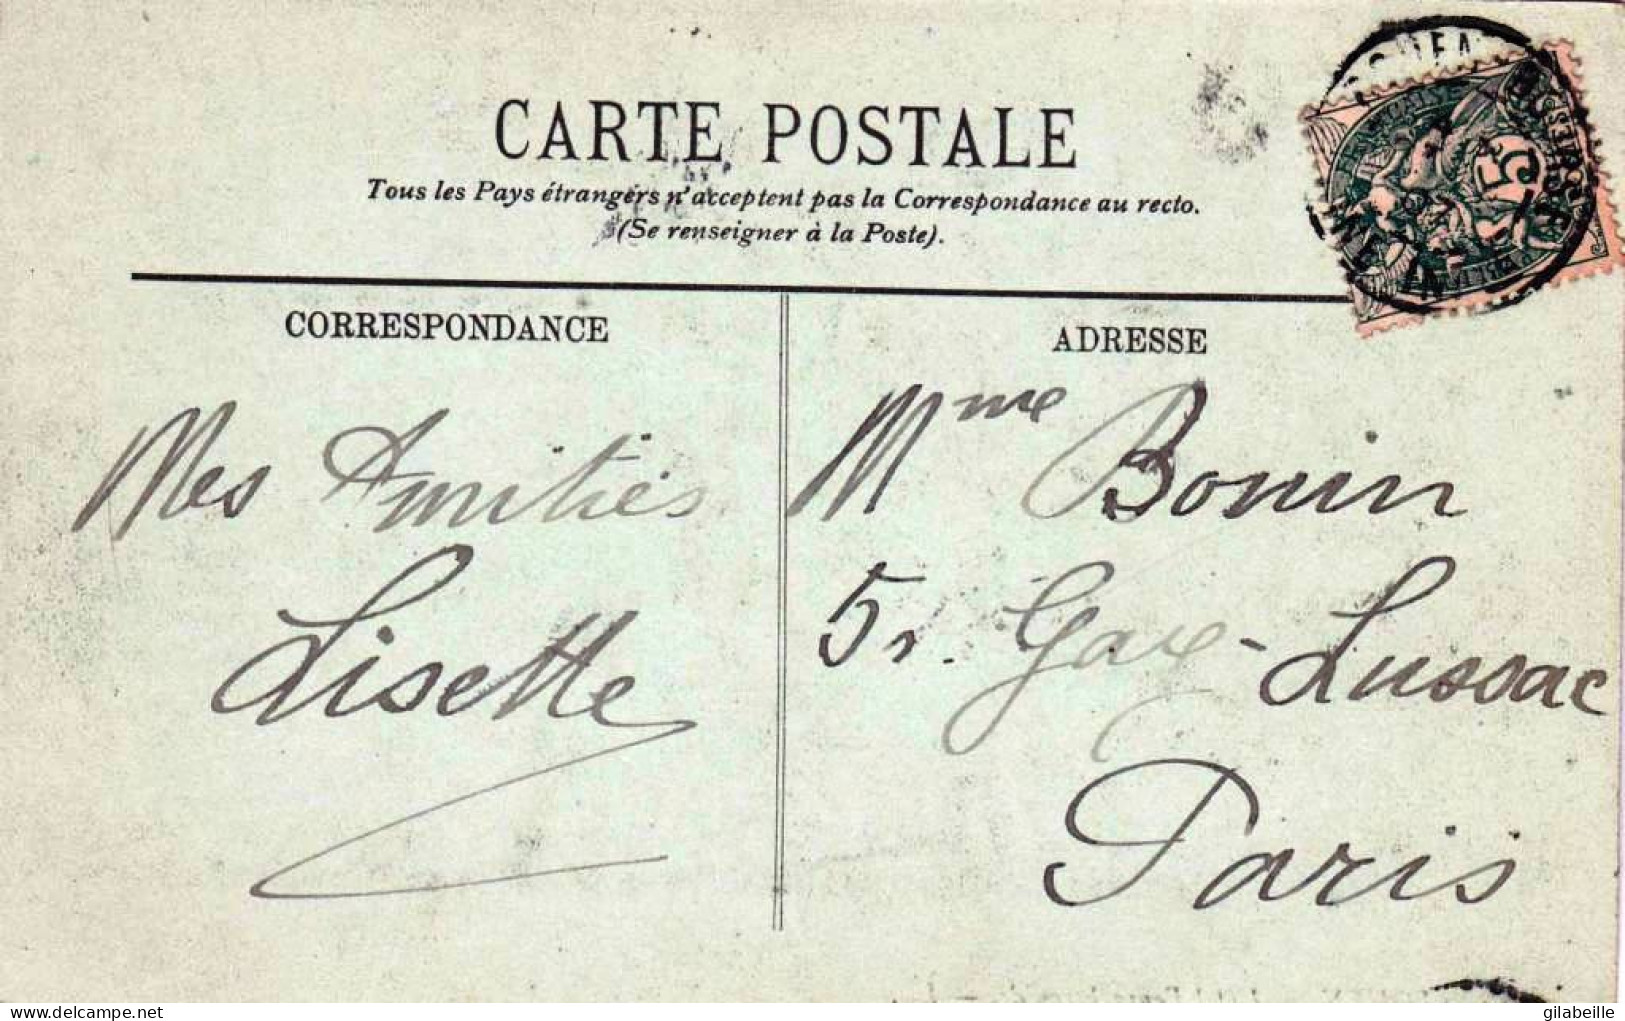 CARTE POSTALE
Tous les Pays étrangers n'acceptent pas la Correspondance au recto.
(Se renseigner à la Poste).
CORRESPONDANCE
Mes Amitiés
Lisette
ADRESSE
Mme Bonin
5 r. Gay-Lussac
Paris
5
delcampe.net
gilabeille